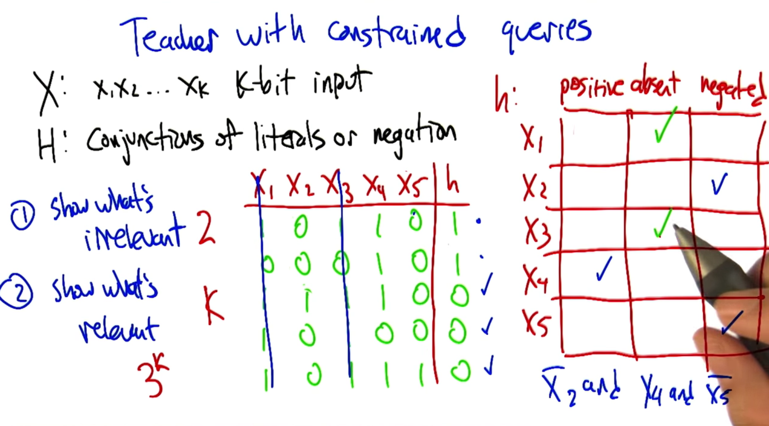 Teacher with constrained queries
X: X₁X₂... Xₖ K-bit input
H: Conjunctions of literals or negation
① show what's irrelevant 2
② show what's relevant K
3ᴷ
X₁ X₂ X₃ X₄ X₅ h
1 0 1 1 0 1
0 0 0 1 0 1
1 1 1 1 0 0
1 0 1 0 0 0
1 0 1 1 1 0
h: positive absent negated
X₁ ✓
X₂ ✓
X₃ ✓
X₄ ✓
X₅ ✓
X̅₂ and X₄ and X̅₅